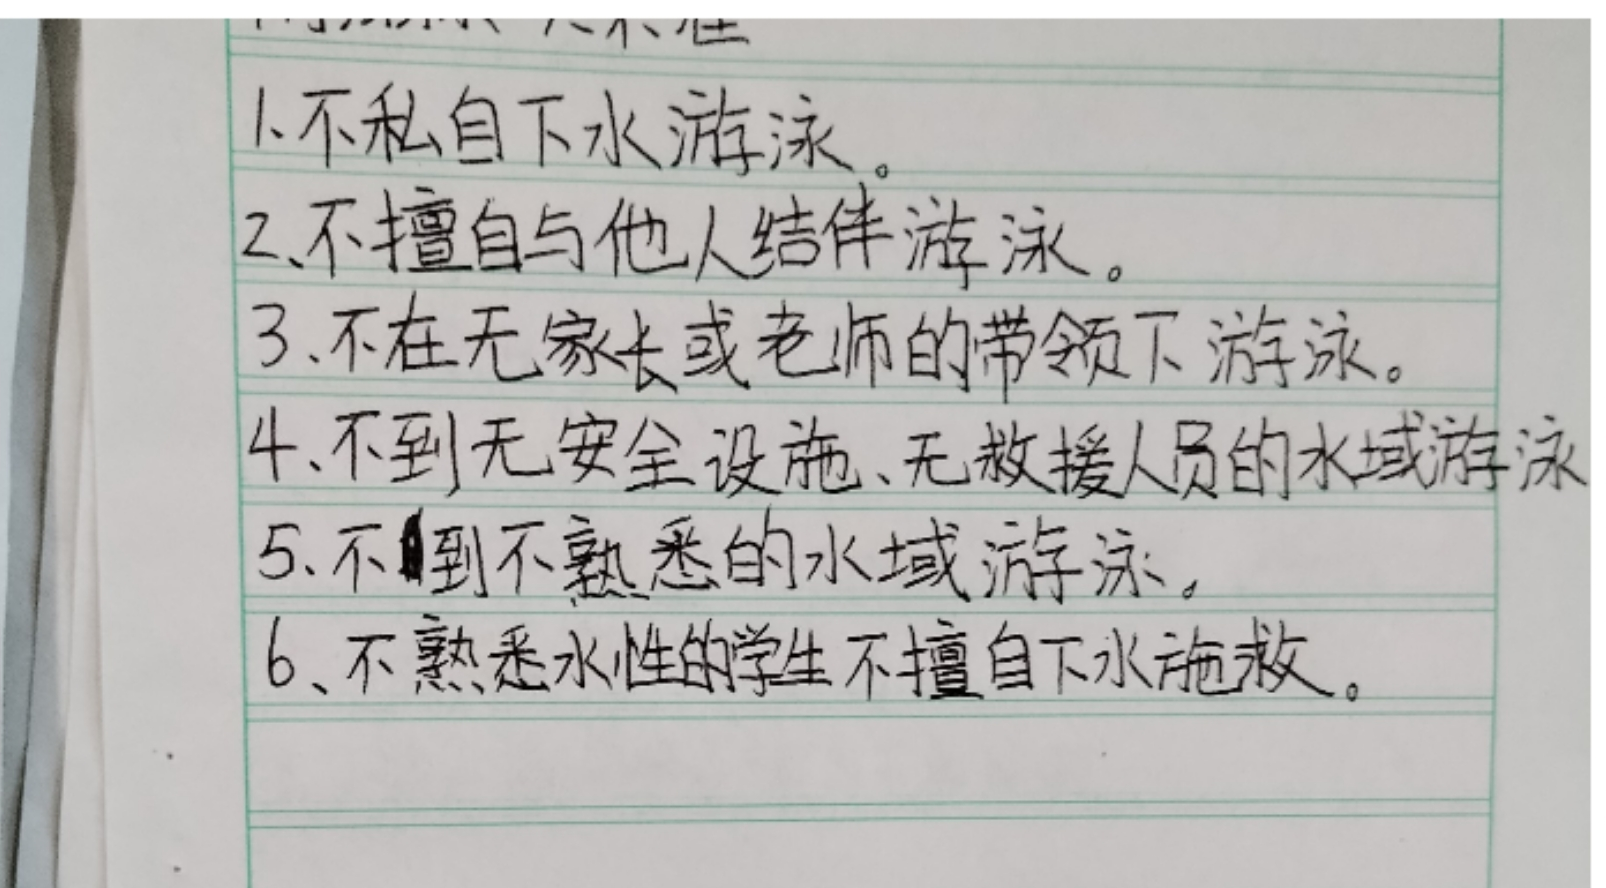 1.不私自下水游泳。
2、不擅自与他人结伴游泳。
3、不在无家长或老师的带领下游泳。
4、不到无安全设施、无救援人员的水域游泳
5、不到不熟悉的水域游泳。
6、不熟悉水性的学生不擅自下水施救。